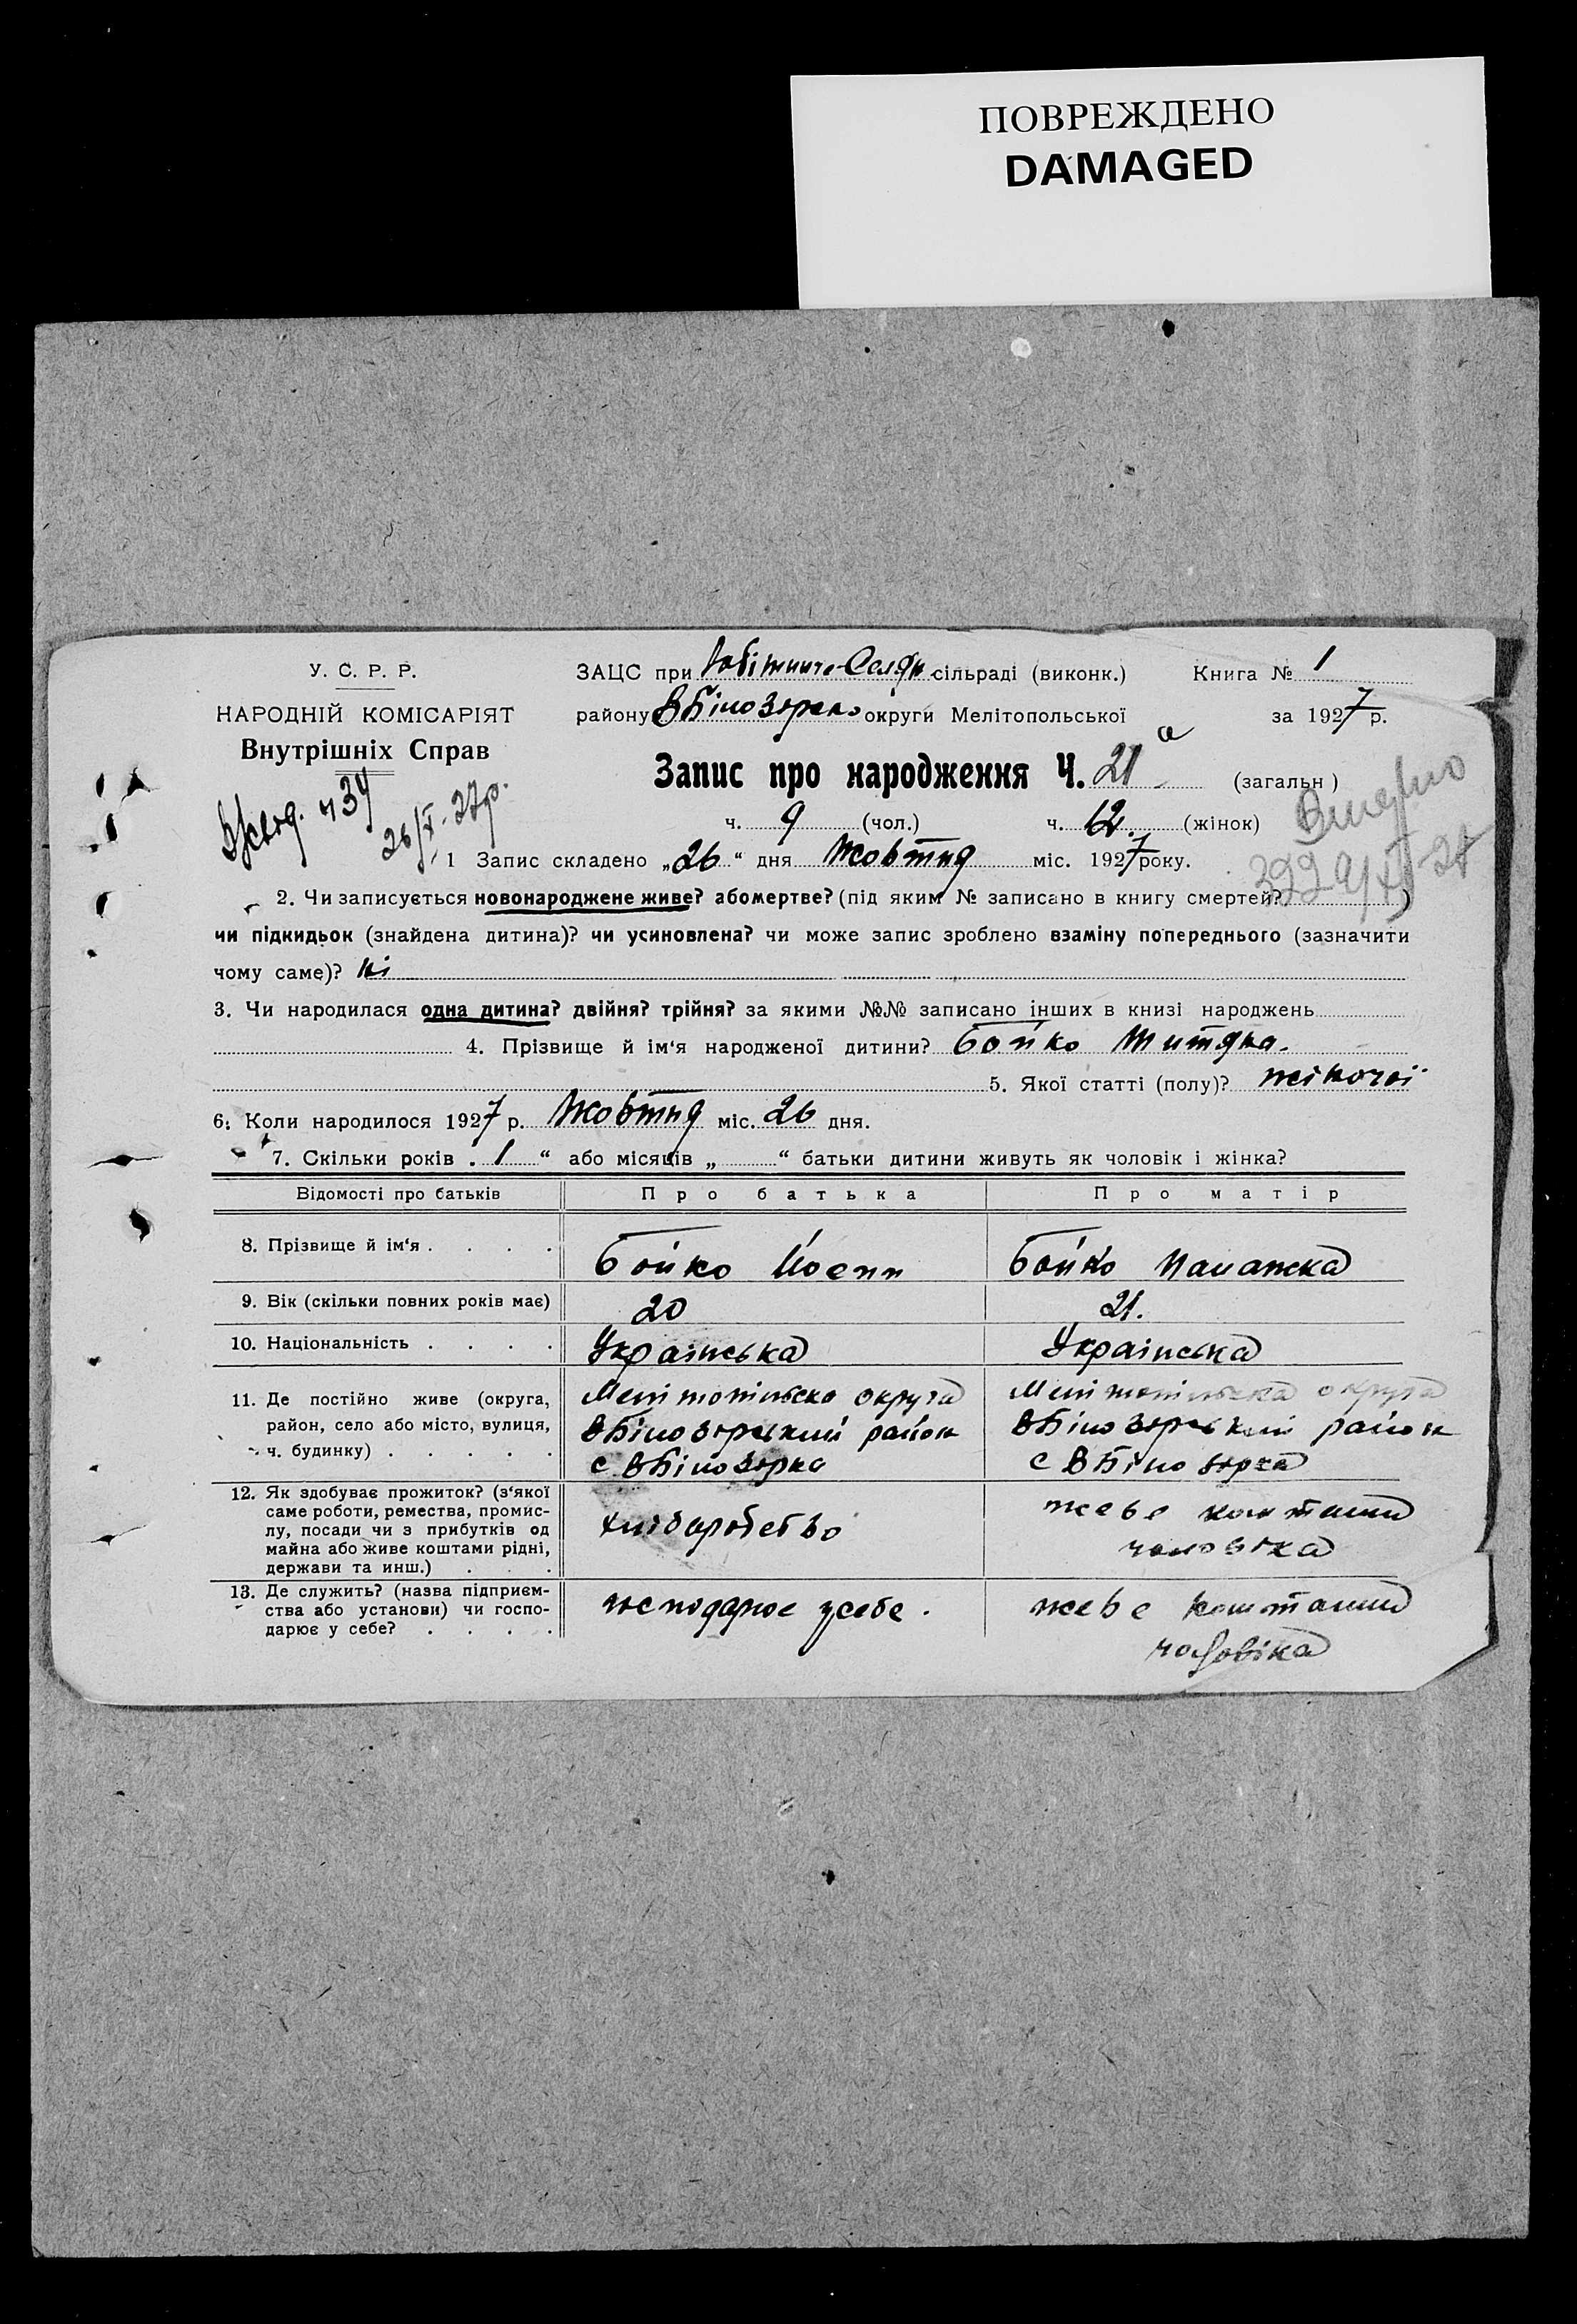 ПОВРЕЖДЕНО
DAMAGED
У. С. Р. Р.
НАРОДНІЙ КОМІСАРІЯТ
Внутрішніх Справ
ЗАЦС при сільраді (виконк.) Книга № 1
району ВБілозірсько округи Мелітопольської за 1927 р.
Запис про народження Ч. 21 а (загальн)
ч. 9 (чол.) ч. 12. (жінок)
ч 34
26/X-27р.
1 Запис складено „26“ дня Жовтня міс. 1927 року.
2. Чи записується новонароджене живе? або мертве? (під яким № записано в книгу смертей? )
чи підкидьок (знайдена дитина)? чи усиновлена? чи може запис зроблено взаміну попереднього (зазначити
чому саме)? ні
3. Чи народилася одна дитина? двійня? трійня? за якими №№ записано інших в книзі народжень
4. Прізвище й ім‘я народженої дитини? Бойко Титяна.
5. Якої статті (полу)? жіночої
6. Коли народилося 1927 р. Жовтня міс. 26 дня.
7. Скільки років „1“ або місяців „ “ батьки дитини живуть як чоловік і жінка?
Відомості про батьків Про батька Про матір
8. Прізвище й ім‘я . . . . Бойко Йосип Бойко Палажка
9. Вік (скільки повних років має) 20 21.
10. Національність . . . . Українська Українська
11. Де постійно живе (округа, район, село або місто, вулиця, ч. будинку) . . . . .
Мелітопільска округа Мелітопільска округа
ВБілозірський район ВБілозірський район
с ВБілозірка с ВБілозірка
12. Як здобуває прожиток? (з‘якої
саме роботи, ремества, промис-
лу, посади чи з прибутків од
майна або живе коштами рідні,
держави та инш.) . . .
хліборобство живе коштами
чоловіка
13. Де служить? (назва підприєм-
ства або установи) чи госпо-
дарює у себе? . . . .
господарює у себе. живе коштами
чоловіка